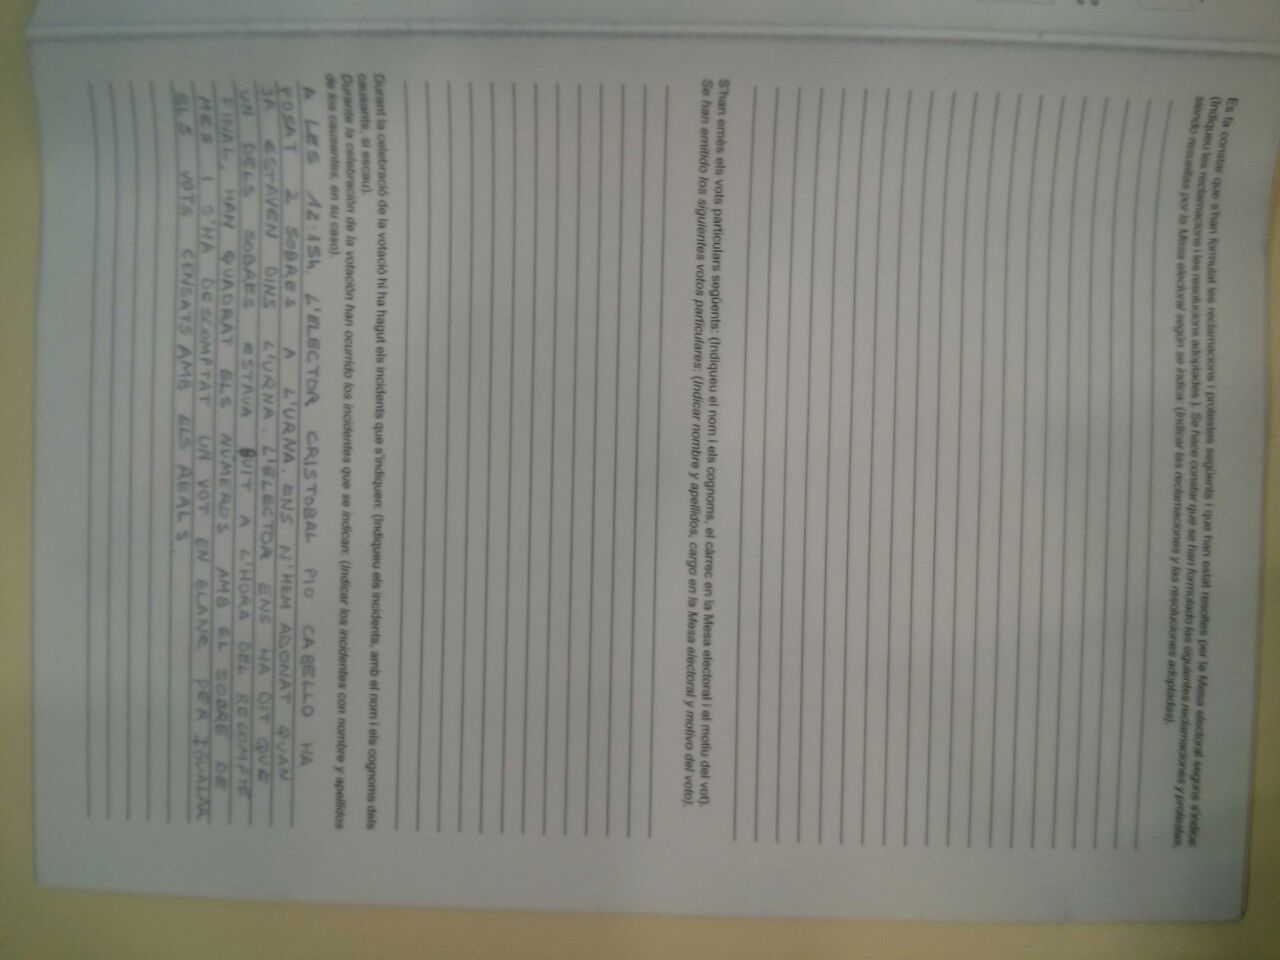 Es fa constar que s'han formulat les reclamacions i protestes següents i que han estat resoltes per la Mesa electoral segons s'indica:
(Indiqueu les reclamacions i les resolucions adoptades ). Se hace constar que se han formulado las siguientes reclamaciones y protestas,
siendo resueltas por la Mesa electoral según se indica: (Indicar las reclamaciones y las resoluciones adoptadas).
S'han emès els vots particulars següents: (Indiqueu el nom i els cognoms, el càrrec en la Mesa electoral i el motiu del vot).
Se han emitido los siguientes votos particulares: (Indicar nombre y apellidos, cargo en la Mesa electoral y motivo del voto).
Durant la celebració de la votació hi ha hagut els incidents que s'indiquen: (Indiqueu els incidents, amb el nom i els cognoms dels
causants, si escau).
Durante la celebración de la votación han ocurrido los incidentes que se indican: (Indicar los incidentes con nombre y apellidos
de los causantes, en su caso).
A LES 12:15H. L'ELECTOR CRISTOBAL PIO CABELLO HA
POSAT 2 SOBRES A L'URNA. ENS N'HEM ADONAT QUAN
JA ESTAVEN DINS L'URNA. L'ELECTOR ENS HA DIT QUE
UN DELS SOBRES ESTAVA BUIT A L'HORA DEL RECOMPTE
FINAL, HAN QUADRAT ELS NÚMEROS AMB EL SOBRE DE
MES I S'HA DESCOMPTAT UN VOT EN BLANC PER IGUALAR
ELS VOTS CENSATS AMB ELS REALS.